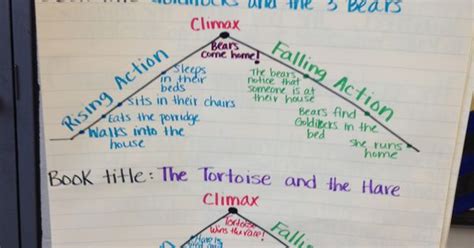 Goldilocks and the 3 Bears
Climax
Bears
come home!
Rising Action
Sleeps
in their
beds
Sits in their chairs
Eats the porridge
Walks into the
house
Falling Action
The bears
notice that
someone is at
their house
Bears find
Goldilocks in the
bed
She runs
home
Book title: The Tortoise and the Hare
Climax
Tortoise
wins the race!